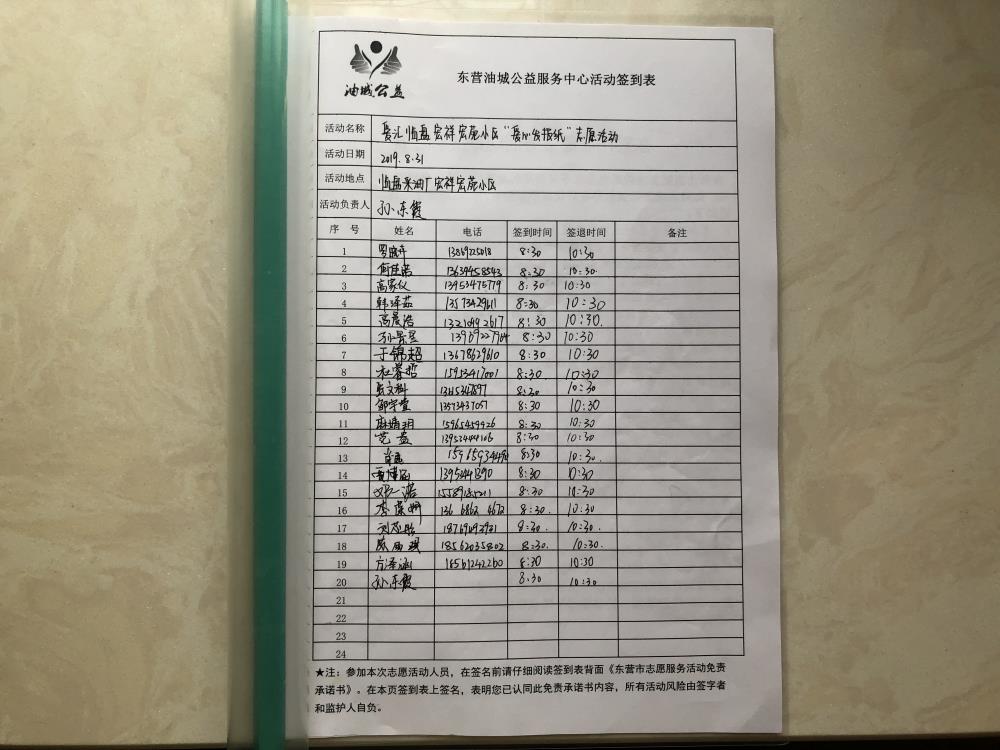 油城公益
东营油城公益服务中心活动签到表
活动名称 爱汇临盘宏祥宏苑小区“爱心发报纸”志愿活动
活动日期 2019.8.31
活动地点 临盘采油厂宏祥宏苑小区
活动负责人 孙东霞
序 号 姓名 电话 签到时间 签退时间 备注
1 8:30 10:30
2 13639458543 8:30 10:30
3 高家仪 13953475779 8:30 10:30
4 韩泽茹 13573429611 8:30 10:30
5 高晨浩 13210492617 8:30 10:30
6 孙景昱 8:30 10:30
7 于锦超 13678629610 8:30 10:30
8 杜睿哲 15953417001 8:30 10:30
9 8:30 10:30
10 13573437057 8:30 10:30
11 麻靖玥 15965459926 8:30 10:30
12 8:30 10:30
13 8:30 10:30
14 13953441390 8:30 10:30
15 邓一诺 8:30 10:30
16 8:30 10:30
17 8:30 10:30
18 18562035802 8:30 10:30
19 方泽涵 18561242260 8:30 10:30
20 孙东霞 8:30 10:30
21
22
23
24
★注：参加本次志愿活动人员，在签名前请仔细阅读签到表背面《东营市志愿服务活动免责
承诺书》。在本页签到表上签名，表明您已认同此免责承诺书内容，所有活动风险由签字者
和监护人自负。